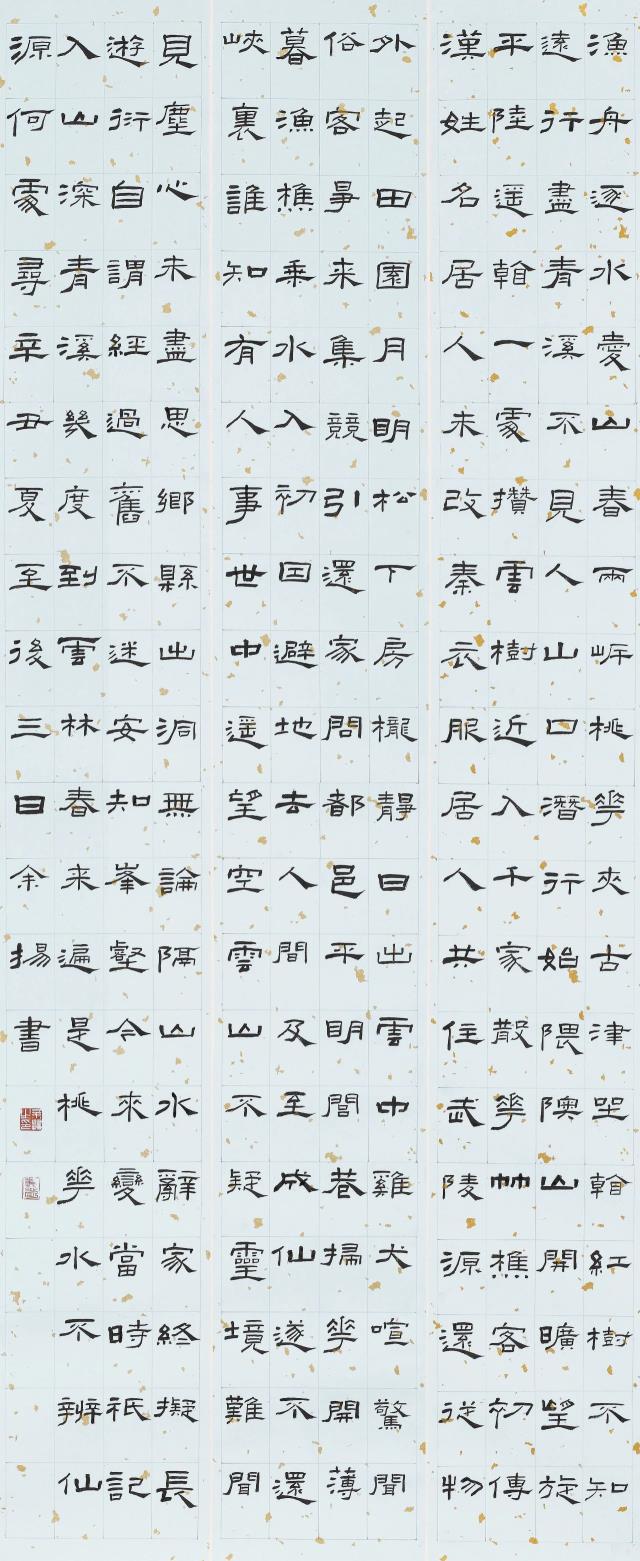 漁舟逐水愛山春兩岸桃華夾古津坐看紅樹不知
遠行盡青溪不見人山口潛行始隈隩山開曠望旋
平陸遥看一處攢雲樹近入千家散華竹樵客初傳
漢姓名居人未改秦衣服居人共住武陵源還從物
外起田園月明松下房櫳靜日出雲中雞犬喧驚聞
俗客爭来集競引還家問都邑平明閭巷掃華開薄
暮漁樵乘水入初因避地去人間及至成仙遂不還
峽裏誰知有人事世中遥望空雲山不疑靈境難聞
見塵心未盡思鄉縣出洞無論隔山水辭家終擬長
遊衍自謂經過舊不迷安知峯壑今來變當時衹記
入山深青溪幾度到雲林春来遍是桃華水不辨仙
源何處尋辛丑夏至後三日余揚書